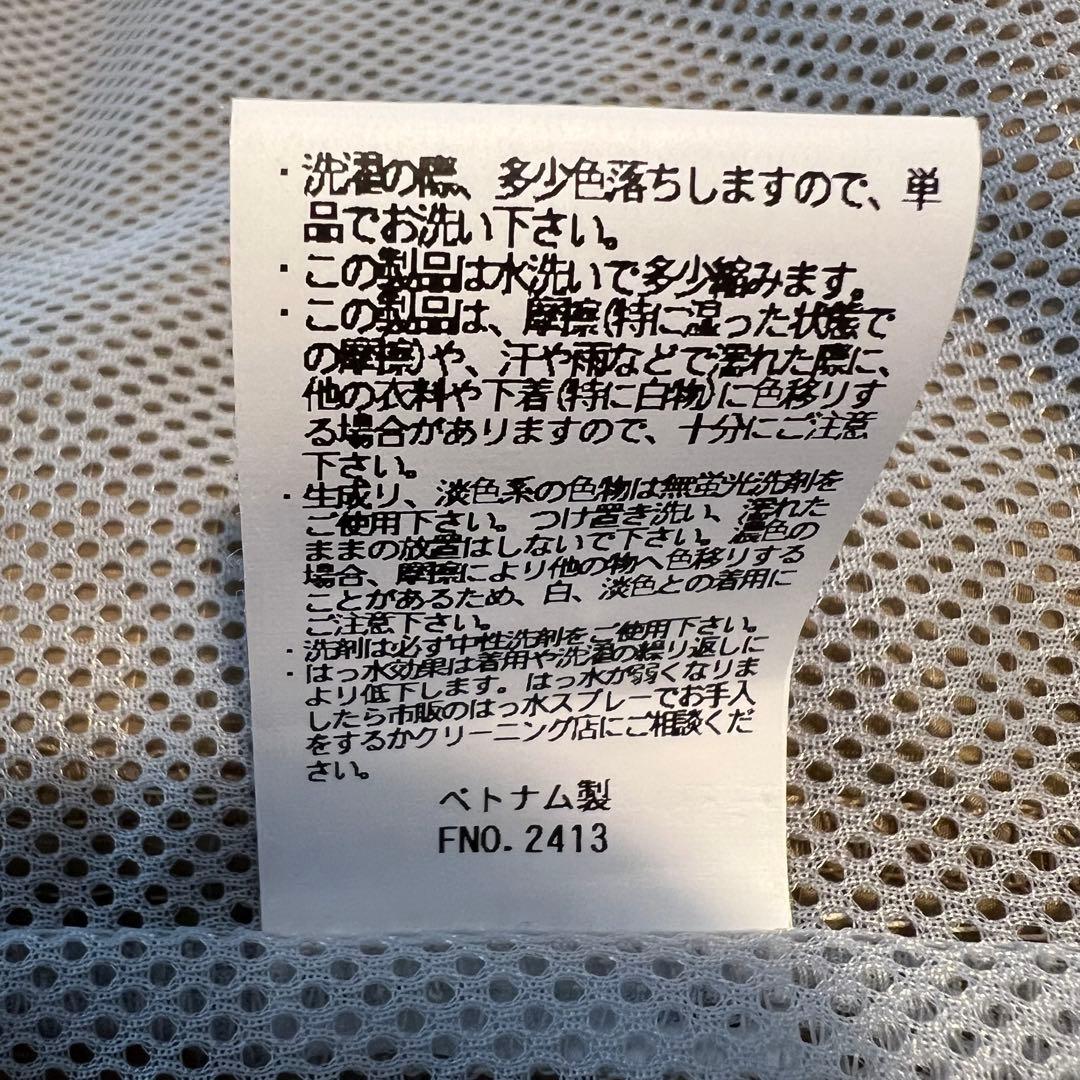 ・洗濯の際、多少色落ちしますので、単
品でお洗い下さい。
・この製品は水洗いで多少縮みます。
・この製品は、摩擦(特に湿った状態で
の摩擦)や、汗や雨などで濡れた際に、
他の衣料や下着(特に白物)に色移りす
る場合がありますので、十分にご注意
下さい。
・生成り、淡色系の色物は無蛍光洗剤を
ご使用下さい。つけ置き洗い、濡れた
ままの放置はしないで下さい。濃色の
場合、摩擦により他の物へ色移りする
ことがあるため、白、淡色との着用に
ご注意下さい。
・洗剤は必ず中性洗剤をご使用下さい。
・はっ水効果は着用や洗濯の繰り返しに
より低下します。はっ水が弱くなりま
したら市販のはっ水スプレーでお手入
をするかクリーニング店にご相談くだ
さい。
ベトナム製
FNO.2413